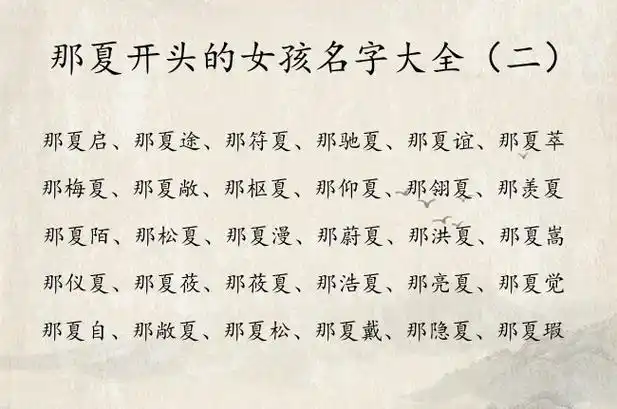 那夏开头的女孩名字大全（二）
那夏启、那夏途、那符夏、那驰夏、那夏谊、那夏萃
那梅夏、那夏敞、那枢夏、那仰夏、那翎夏、那羡夏
那夏陌、那松夏、那夏漫、那蔚夏、那洪夏、那夏嵩
那仪夏、那夏莜、那莜夏、那浩夏、那亮夏、那夏觉
那夏自、那敞夏、那夏松、那夏戴、那隐夏、那夏瑕